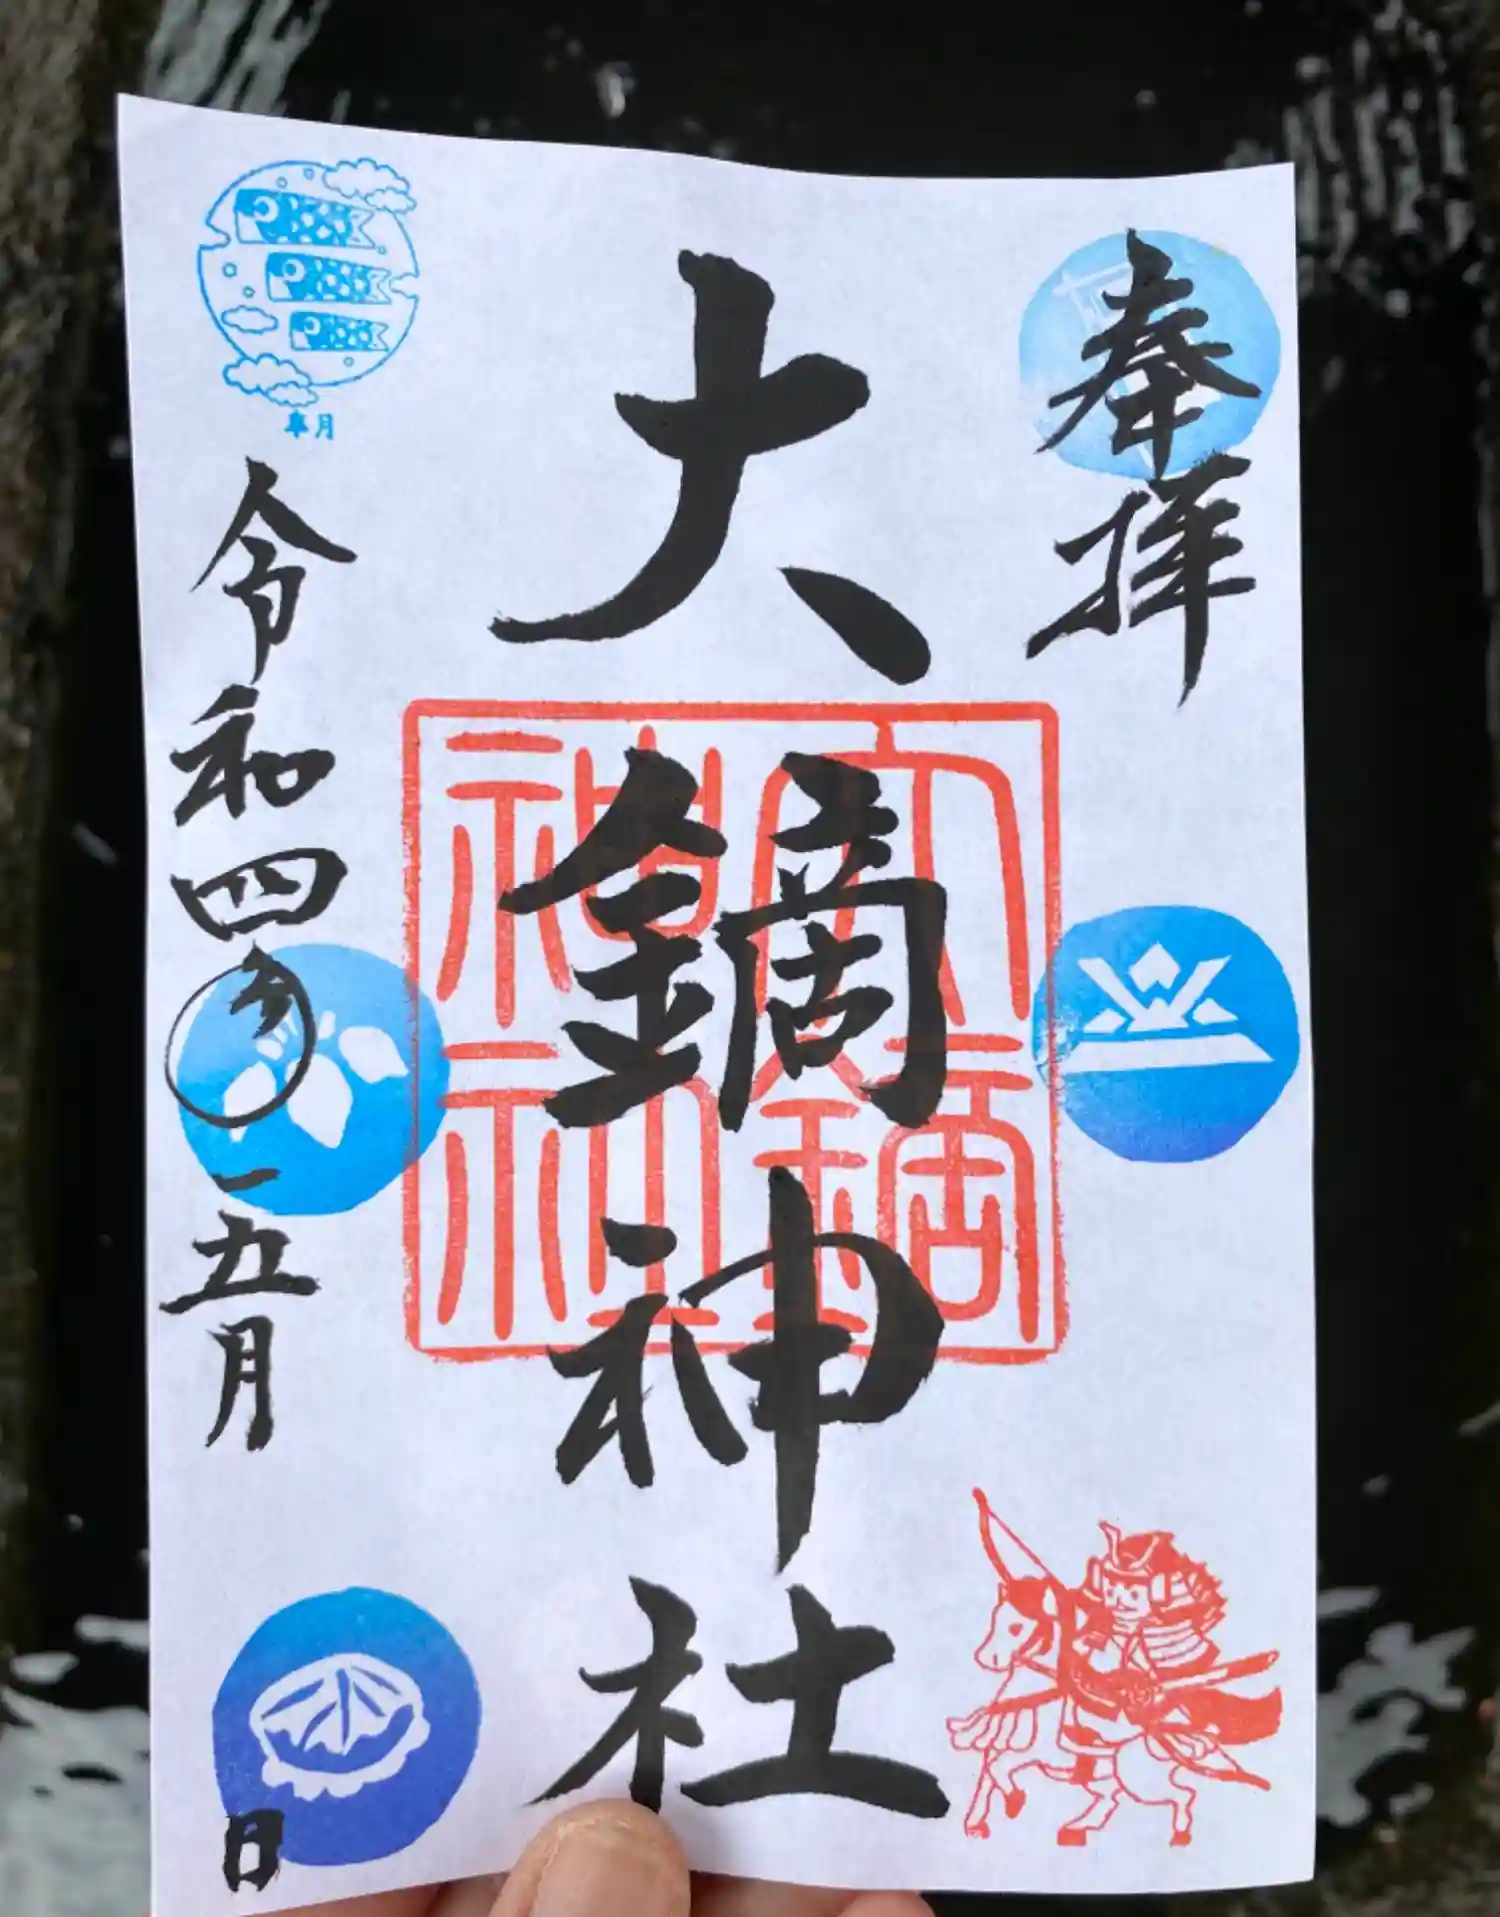 奉拝
大鏑神社
大鏑
神社
皐月
令和四年
五月
日